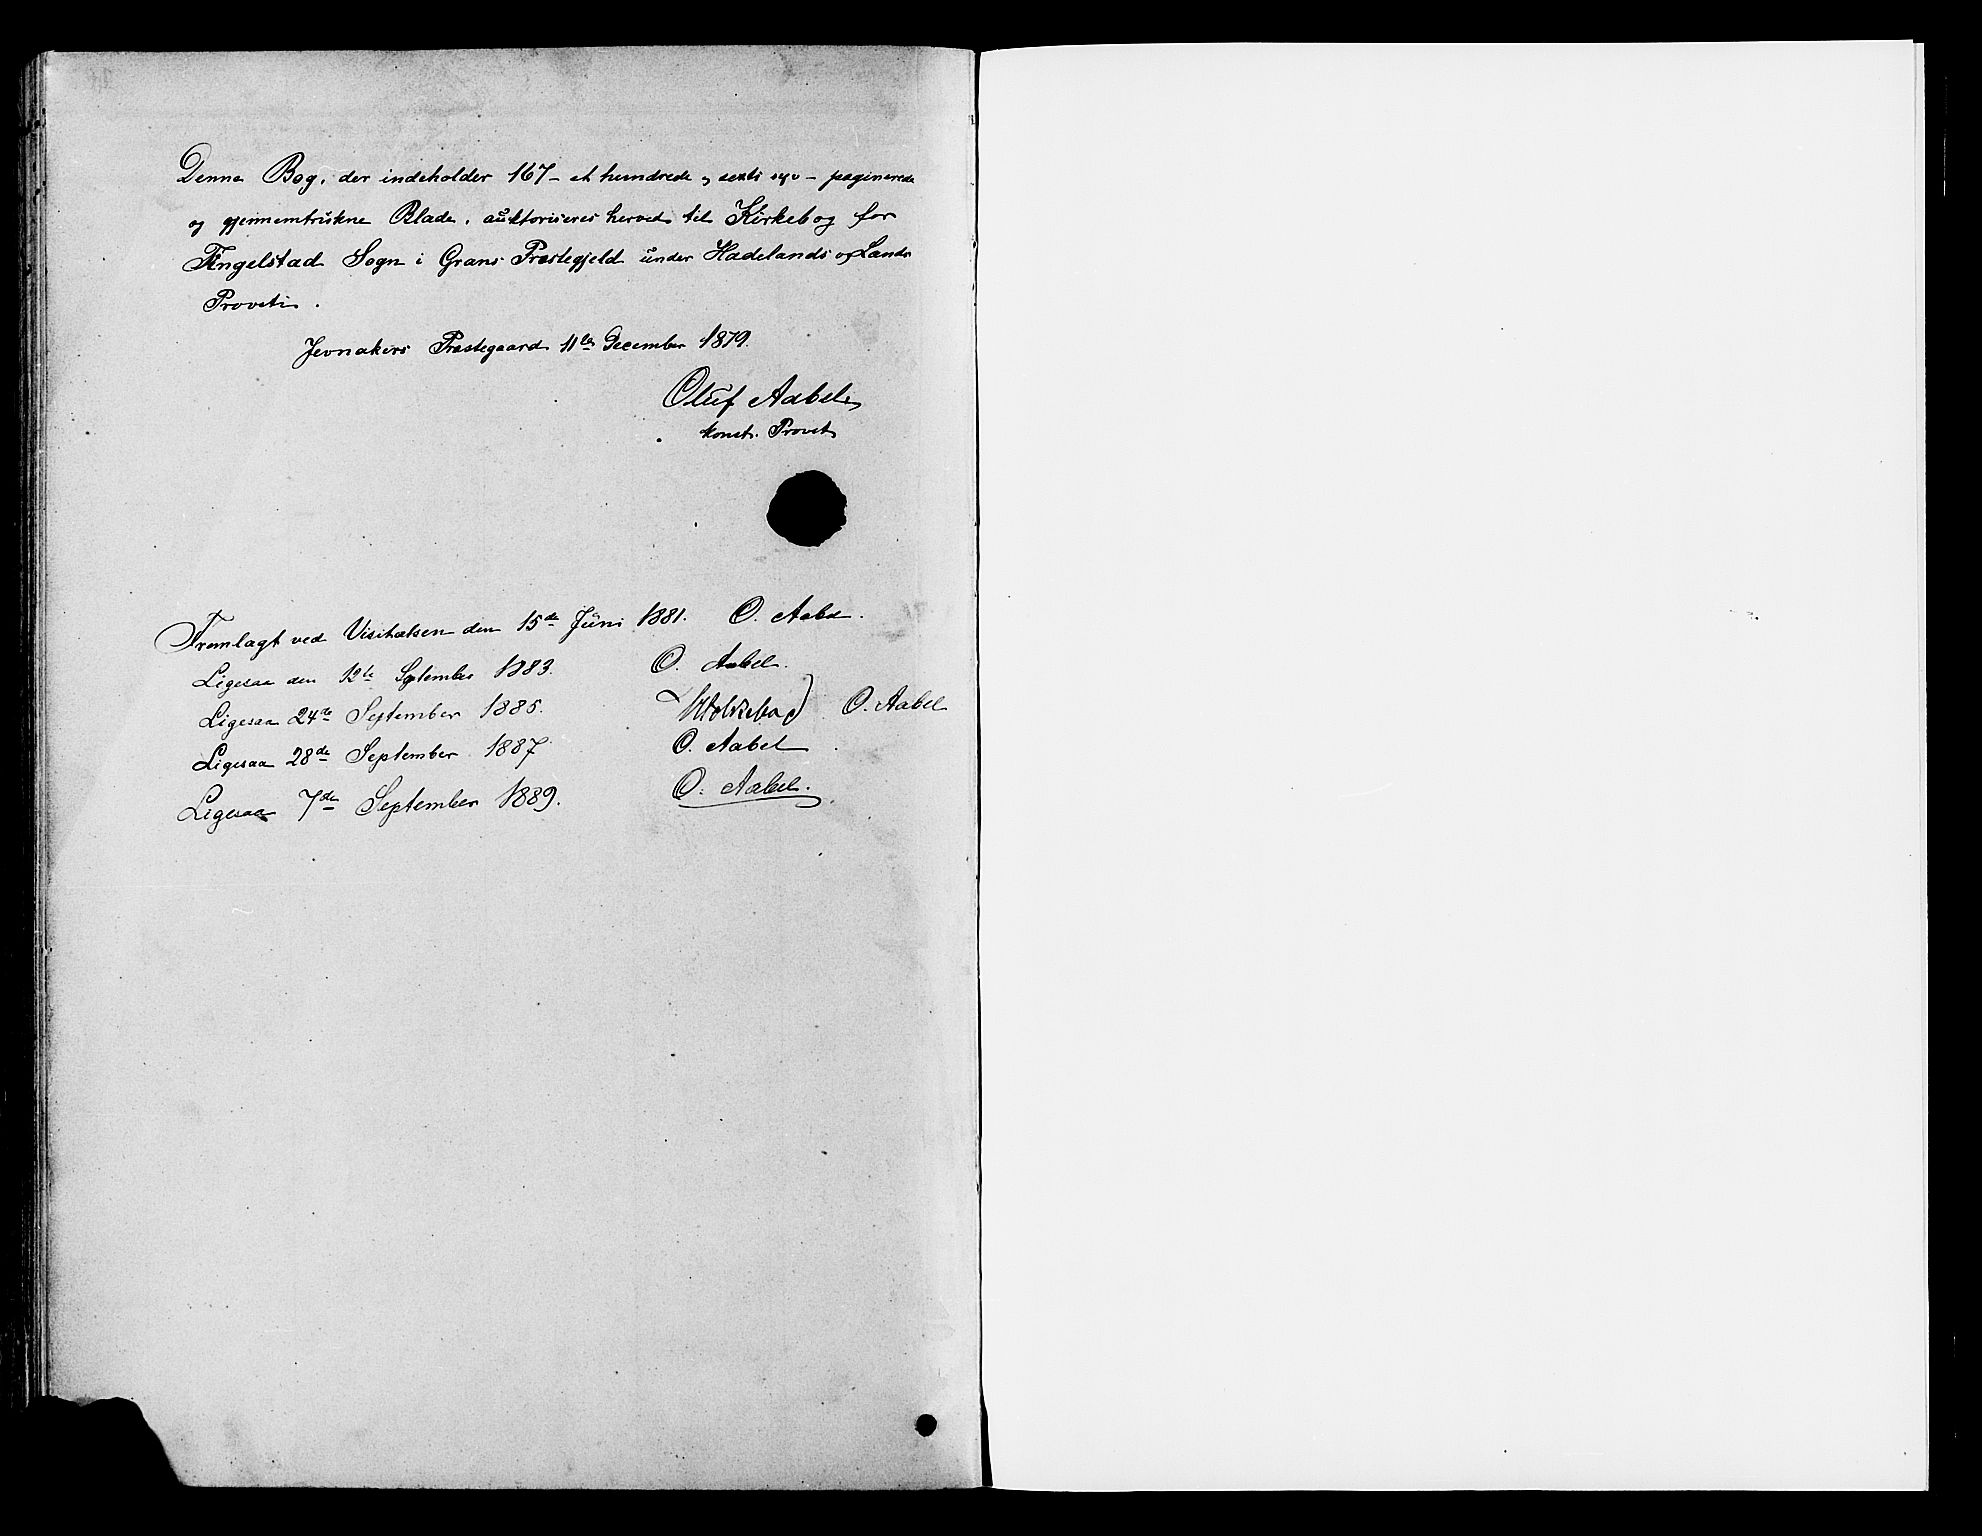 Denne Bog, der indeholder 167 – et hundrede og sexti syv – paginerede
og gjennemtrukne Blade, auktoriseres herved til Kirkebog for
Tingelstad Sogn i Grans Præstegjeld under Hadelands og Lands
Provsti.
Jevnakers Præstegaard 11te December 1879.
Oluf Aabel
konst. Provst
Fremlagt ved Visitatsen den 15de Juni 1881. O. Aabel.
Ligesaa den 12te September 1883. O. Aabel.
Ligesaa 24de September 1885. O. Aabel
Ligesaa 28de September 1887. O. Aabel
Ligesaa 7de September 1889. O. Aabel.